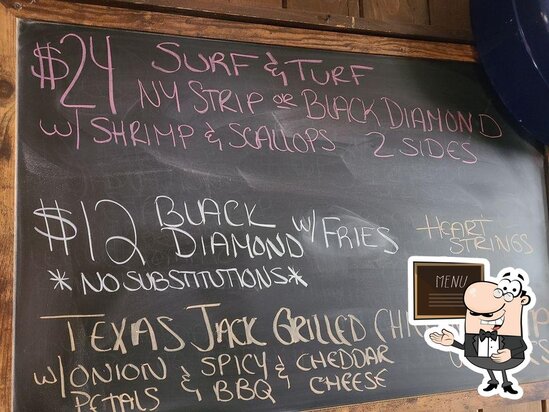 $24 SURF & TURF
NY STRIP OR BLACK DIAMOND
W/ SHRIMP & SCALLOPS 2 SIDES
$12 BLACK DIAMOND W/ FRIES
* NO SUBSTITUTIONS *
HEART STRINGS
TEXAS JACK GRILLED
W/ ONION PETALS & SPICY BBQ & CHEDDAR CHEESE
MENU